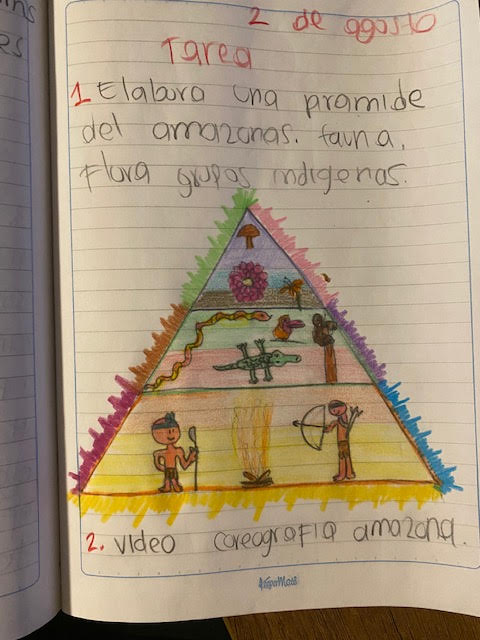 2 de agosto
Tarea
1 Elabora una pramide
del amazonas. fauna,
Flora grupos indigenas.
2. Video coreografia amazona.